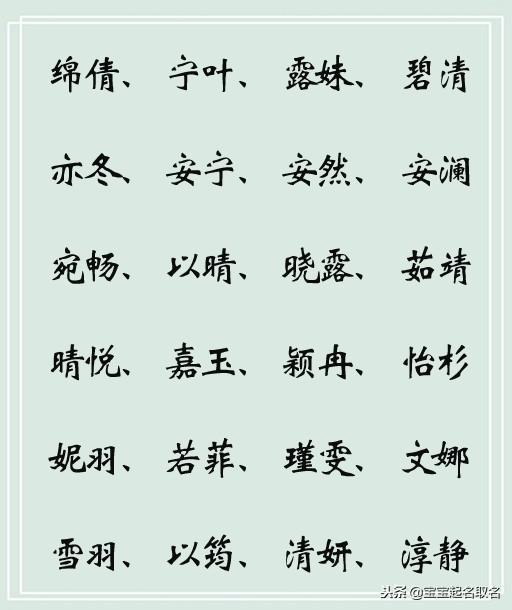 绵倩、宁叶、露妹、碧清
亦冬、安宁、安然、安澜
宛畅、以晴、晓露、茹靖
晴悦、嘉玉、颖冉、怡杉
妮羽、若菲、瑾雯、文娜
雪羽、以筠、清妍、淳静
头条 @宝宝起名取名